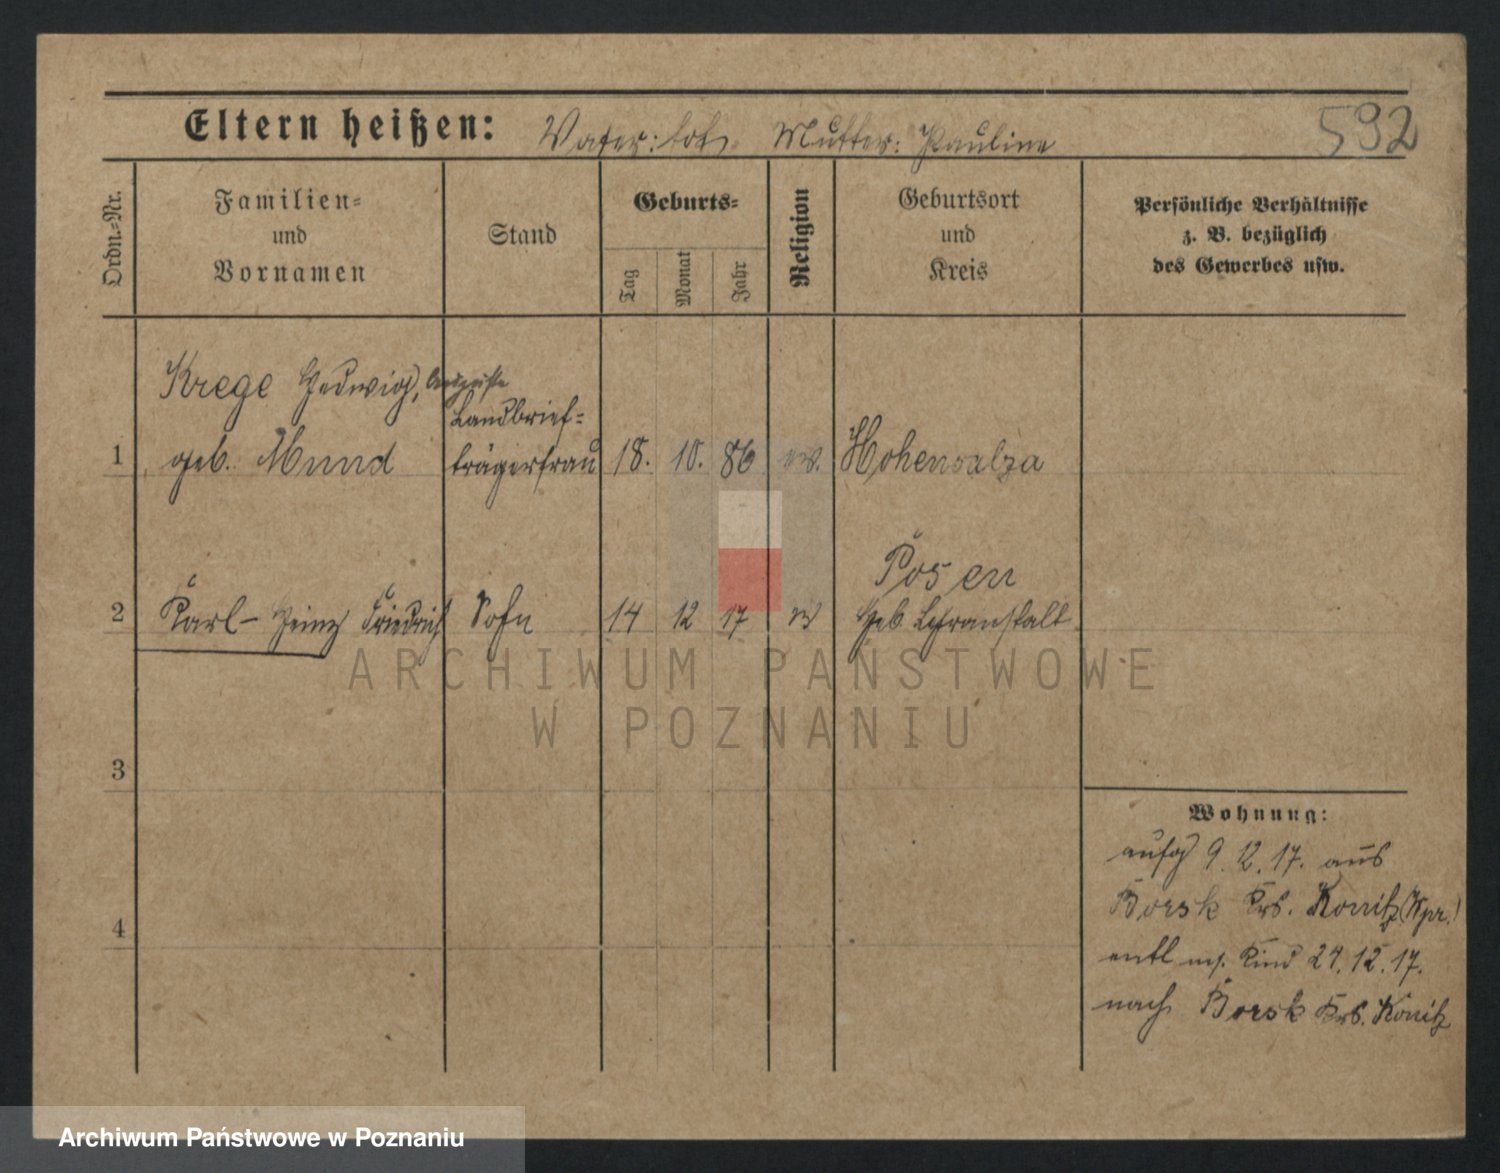 Eltern heißen: Vater: tot. Mutter: Pauline
592
Ordn.-Nr.
Familien-
und
Vornamen
Stand
Geburts-
Tag
Monat
Jahr
Religion
Geburtsort
und
Kreis
Persönliche Verhältnisse
z. B. bezüglich
des Gewerbes usw.
Krege Hedwig, Auguste
geb. Mund
Landbrief-
trägerfrau
1 18. 10. 86 ev. Hohensalza
Posen
2 Karl-Heinz Friedrich Sohn 14 12 17 ev Heb. Lehranstalt
3
4
Wohnung:
aufg 9. 12. 17. aus
Borsk Krs. Konitz (Wpr.)
entl m. Kind 24. 12. 17.
nach Borsk Krs. Konitz
ARCHIWUM PAŃSTWOWE
W POZNANIU
Archiwum Państwowe w Poznaniu